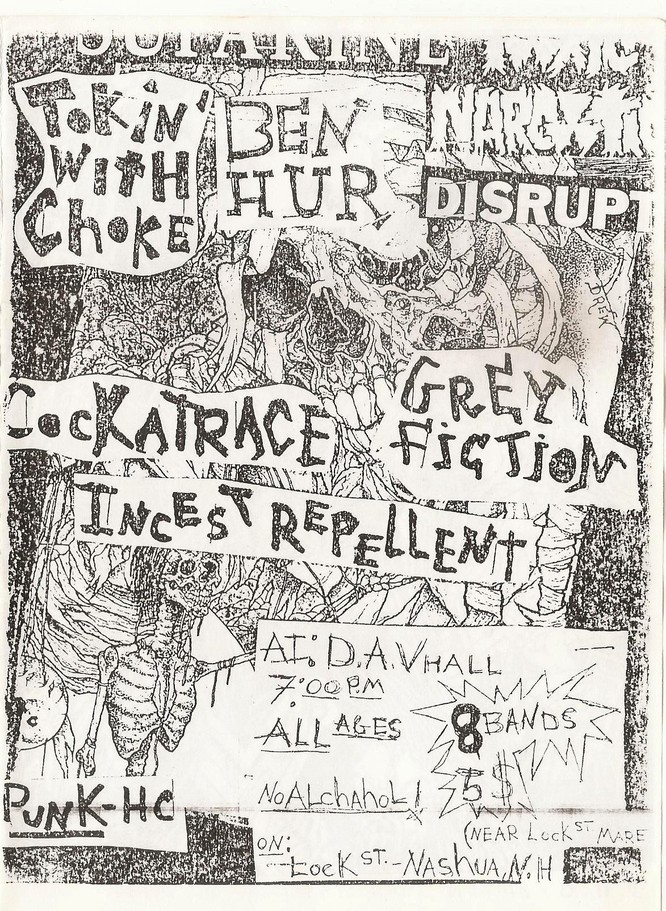 TOKIN'
WITH
CHOKE
BEN
HUR
DISRUPT
DREW
COCKATRACE
GREY
FICTION
INCEST REPELLENT
AT: D.A.V HALL
7:00 PM
ALL AGES
8 BANDS
5$
NO ALchahoL!
PUNK-HC
(NEAR Lock ST MARE
ON:
Lock ST. - NASHUA, N.H